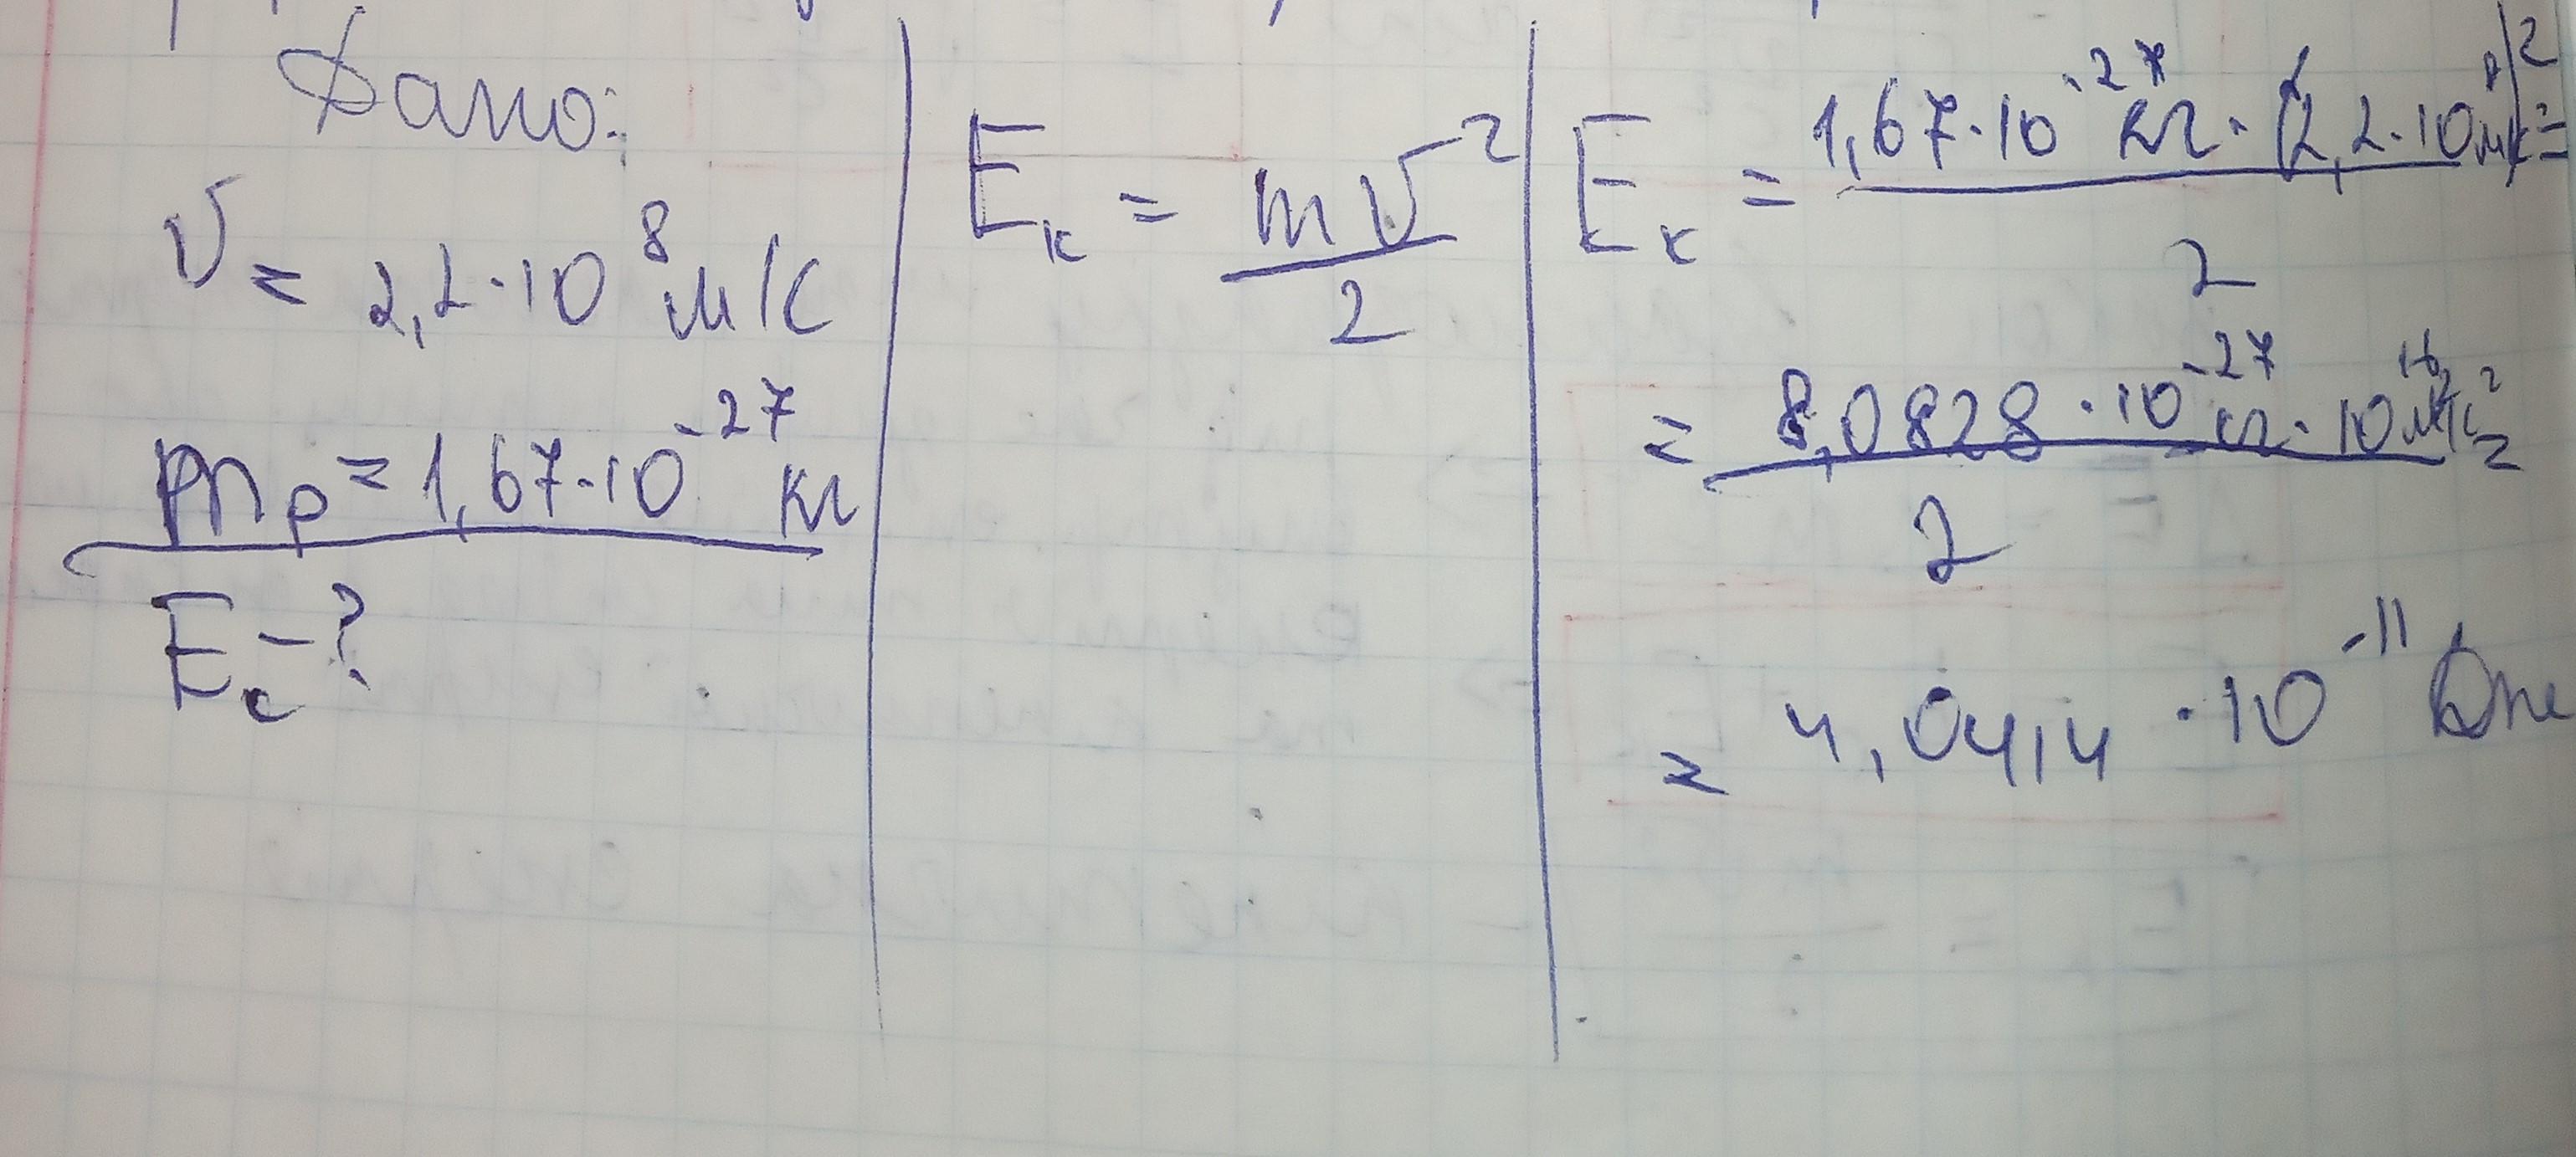 Дано:
υ = 2,2·10⁸ м/с
mₚ = 1,67·10⁻²⁷ кг
Eс - ?
Eк = mυ²/2
Eк = 1,67·10⁻²⁷ кг · (2,2·10⁸ м/с)²/2 =
= 8,0828·10⁻²⁷ кг·10¹⁶ м²/с²/2 =
= 4,0414·10⁻¹¹ Дж